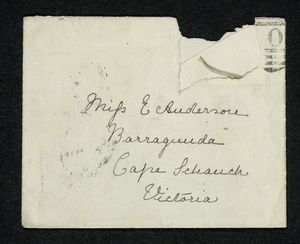 Miss E Anderson
"Barragunda"
Cape Schanck
Victoria